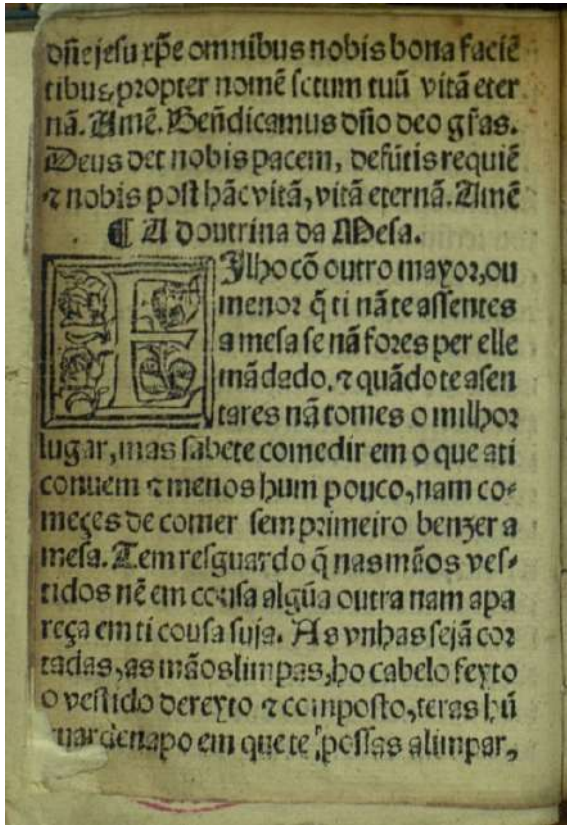 dñe jesu xp̃e omnibus nobis bona faciẽ
tibus, propter nomẽ sctum tuũ vitã eter
nã. Amẽ. Beñdicamus dño deo gr̃as.
Deus det nobis pacem, defũtis requiẽ
⁊ nobis post hãc vitã, vitã eternã. Amẽ
¶ A doutrina da Mesa.
FJlho cõ outro mayor, ou
menor q̃ ti nã te assentes
a mesa se nã fores per elle
mãdado, ⁊ quãdo te asen
tares nã tomes o milhor
lugar, mas sabete comedir em o que ati
conuem ⁊ menos hum pouco, nam co-
meçes de comer sem primeiro benzer a
mesa. Tem resguardo q̃ nas mãos ves-
tidos nẽ em cousa algũa outra nam apa
reça em ti cousa suja. As vnhas sejã cor
tadas, as mãos limpas, ho cabelo feyto
o vestido dereyto ⁊ composto, teras hũ
guardenapo em que te possas alimpar,